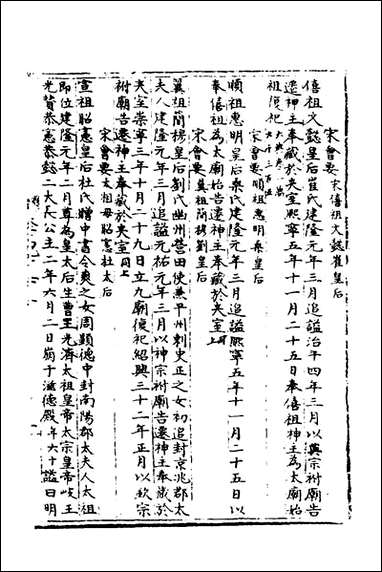 宋會要 宋僖祖文懿崔皇后
僖祖文懿皇后崔氏建隆元年三月追謚治平四年三月以英宗祔廟告
遷神主奉藏於夾室熙寧五年十一月二十五日奉僖祖神主為太廟始
祖復祀
宋會要 順祖惠明桑皇后
順祖惠明皇后桑氏建隆元年三月追謚熙寧五年十一月二十五日以
奉僖祖為太廟告遷神主奉藏於夾室
宋會要 翼祖簡穆劉皇后
翼祖簡穆皇后劉氏幽州營田使兼平州刺史正之女初追封京兆郡太
夫人建隆元年三月追謚元祐元年三月以神宗祔廟告遷神主奉藏於
夾室崇寧三年十月二十九日立九廟復祀紹興三十二年正月以欽宗
祔廟告遷神主奉藏於夾室同上
宋會要 太祖母昭憲杜太后
宣祖昭憲皇后杜氏贈中書令爽之女周顯德中封南陽郡太夫人太祖
即位建隆元年二月尊為皇太后生曹王光濟太祖皇帝太宗皇帝岐王
光贊恭憲恭懿二大長公主二年六月二日崩于滋德殿年六十謚曰明